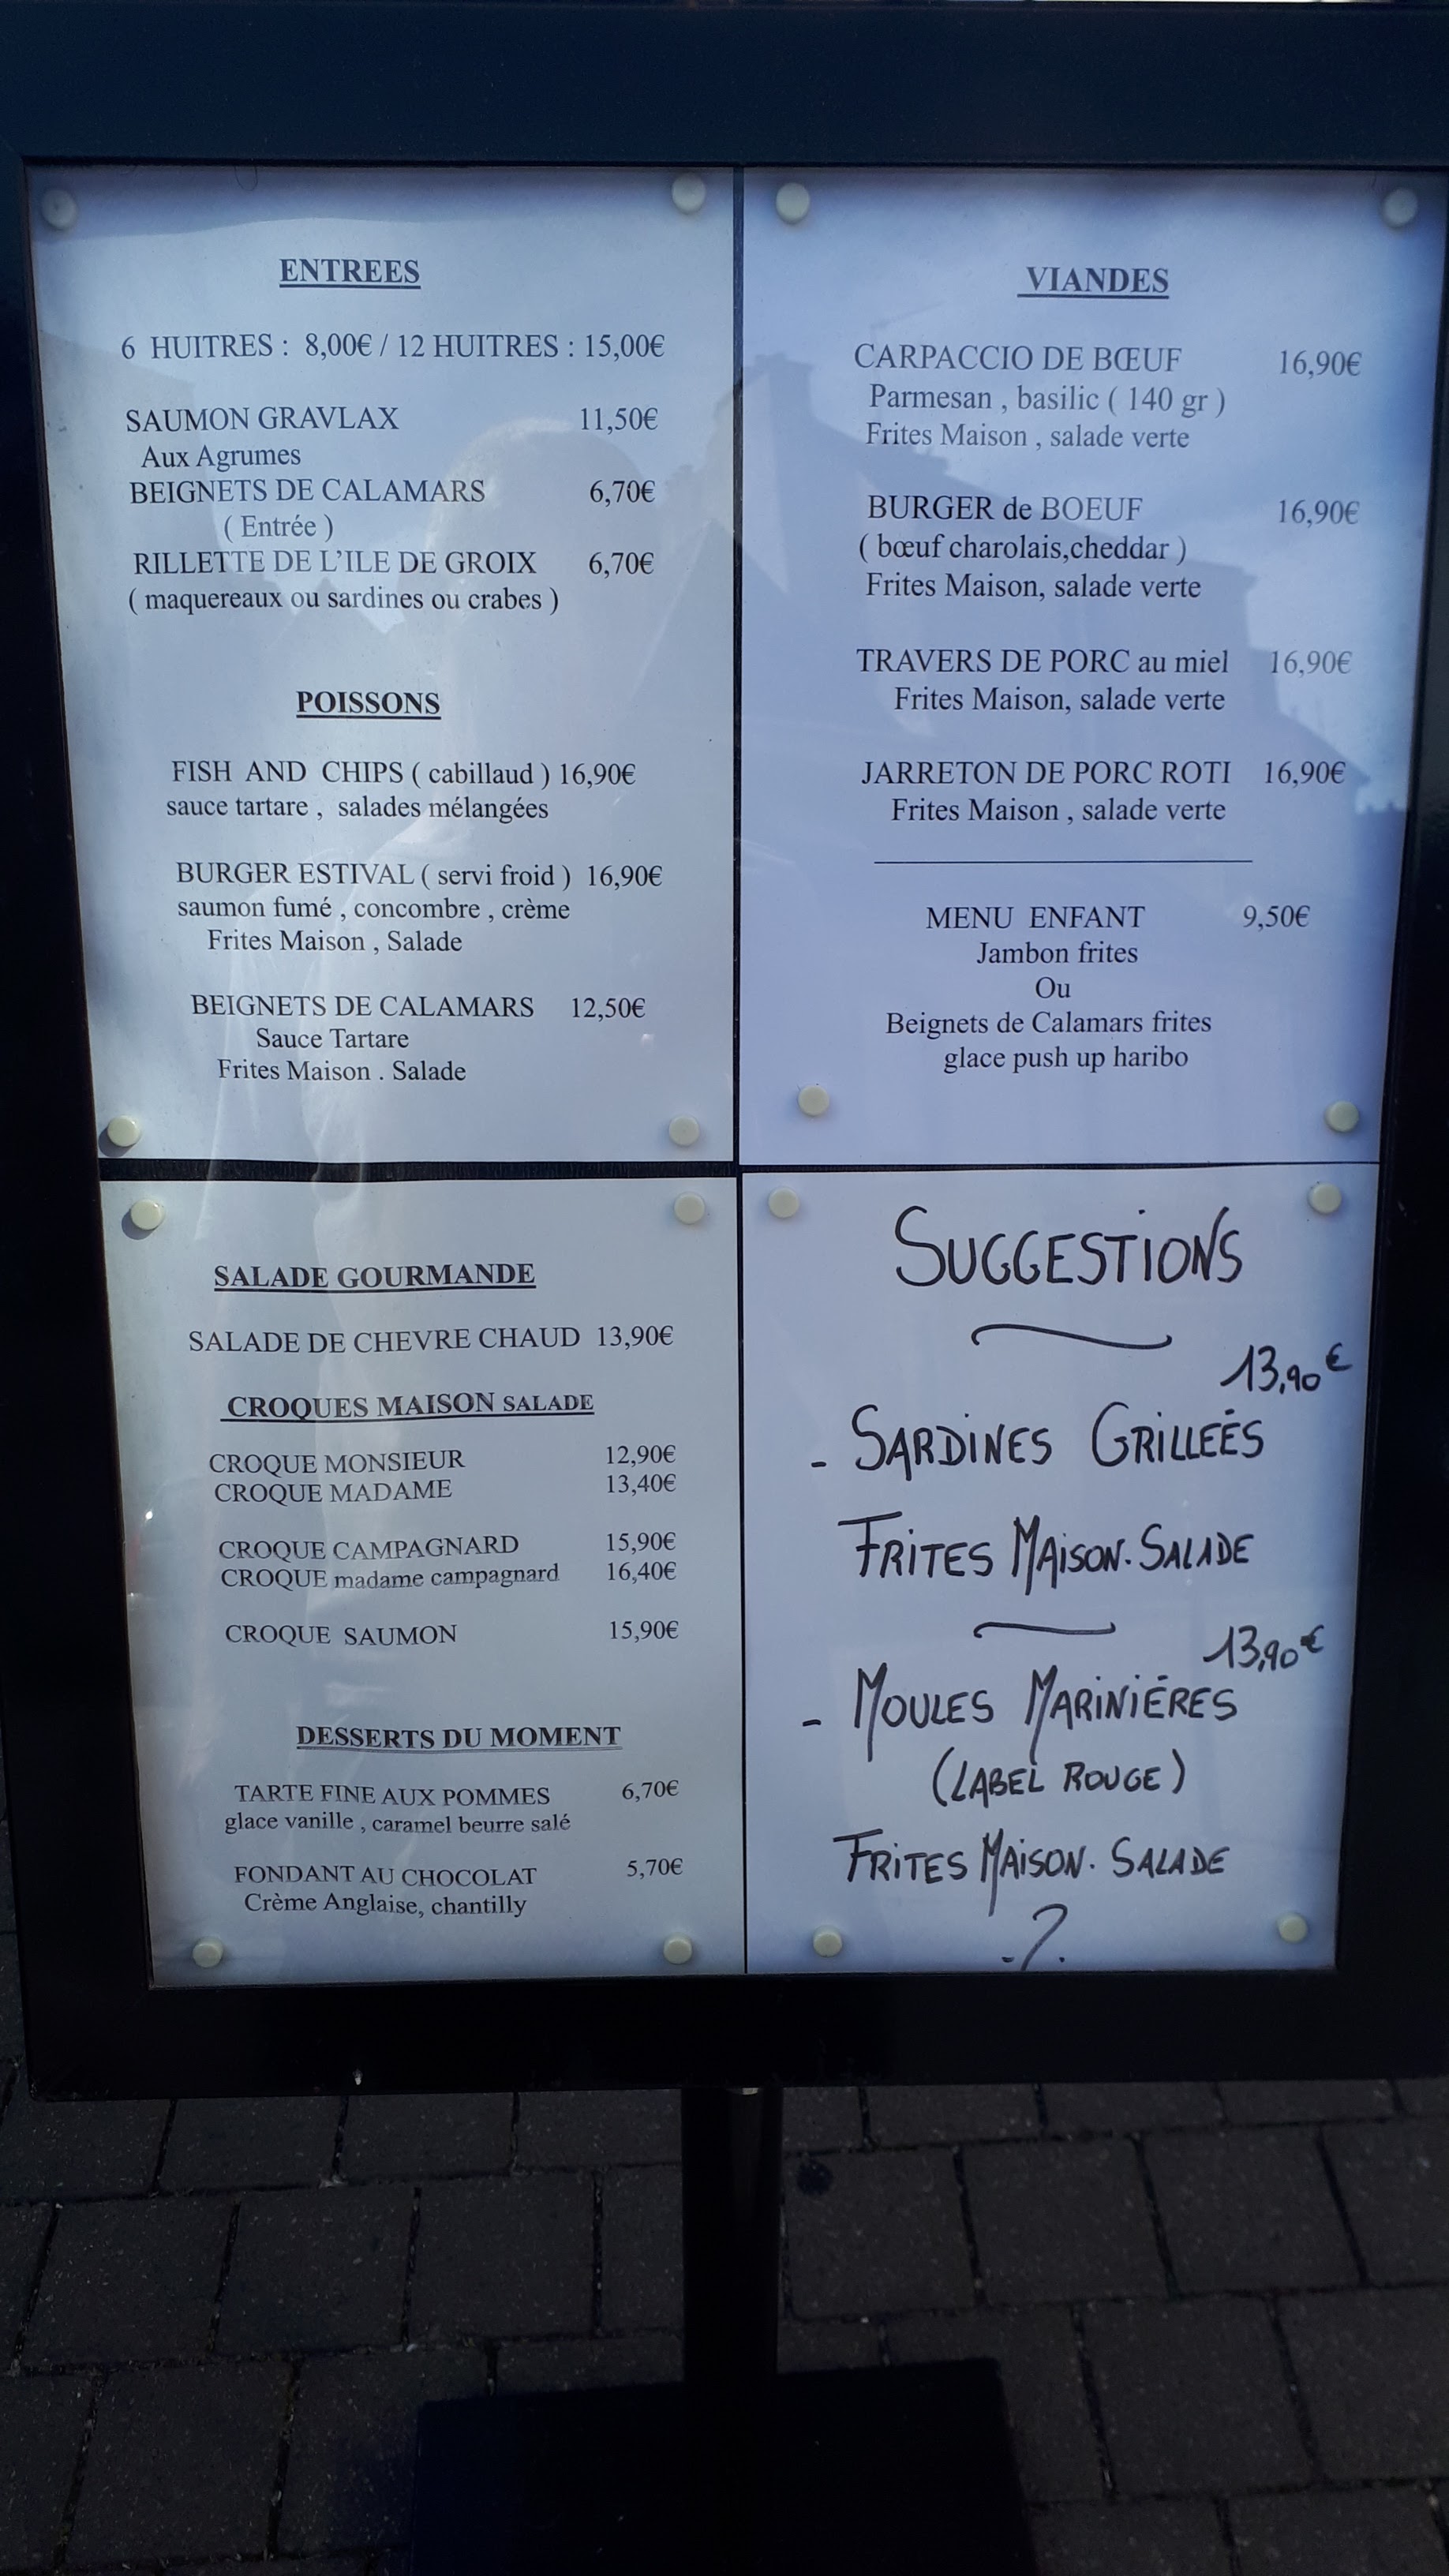 ENTREES
6 HUITRES : 8,00€ / 12 HUITRES : 15,00€
SAUMON GRAVLAX 11,50€
Aux Agrumes
BEIGNETS DE CALAMARS 6,70€
( Entrée )
RILLETTE DE L'ILE DE GROIX 6,70€
( maquereaux ou sardines ou crabes )
POISSONS
FISH AND CHIPS ( cabillaud ) 16,90€
sauce tartare , salades mélangées
BURGER ESTIVAL ( servi froid ) 16,90€
saumon fumé , concombre , crème
Frites Maison , Salade
BEIGNETS DE CALAMARS 12,50€
Sauce Tartare
Frites Maison . Salade
VIANDES
CARPACCIO DE BŒUF 16,90€
Parmesan , basilic ( 140 gr )
Frites Maison , salade verte
BURGER de BOEUF 16,90€
( bœuf charolais,cheddar )
Frites Maison, salade verte
TRAVERS DE PORC au miel 16,90€
Frites Maison, salade verte
JARRETON DE PORC ROTI 16,90€
Frites Maison , salade verte
MENU ENFANT 9,50€
Jambon frites
Ou
Beignets de Calamars frites
glace push up haribo
SALADE GOURMANDE
SALADE DE CHEVRE CHAUD 13,90€
CROQUES MAISON SALADE
CROQUE MONSIEUR 12,90€
CROQUE MADAME 13,40€
CROQUE CAMPAGNARD 15,90€
CROQUE madame campagnard 16,40€
CROQUE SAUMON 15,90€
DESSERTS DU MOMENT
TARTE FINE AUX POMMES 6,70€
glace vanille , caramel beurre salé
FONDANT AU CHOCOLAT 5,70€
Crème Anglaise, chantilly
SUGGESTIONS
13,90€
- SARDINES GRILLEÉS
FRITES MAISON. SALADE
13,90€
- MOULES MARINIÉRES
(LABEL ROUGE)
FRITES MAISON. SALADE
-?.